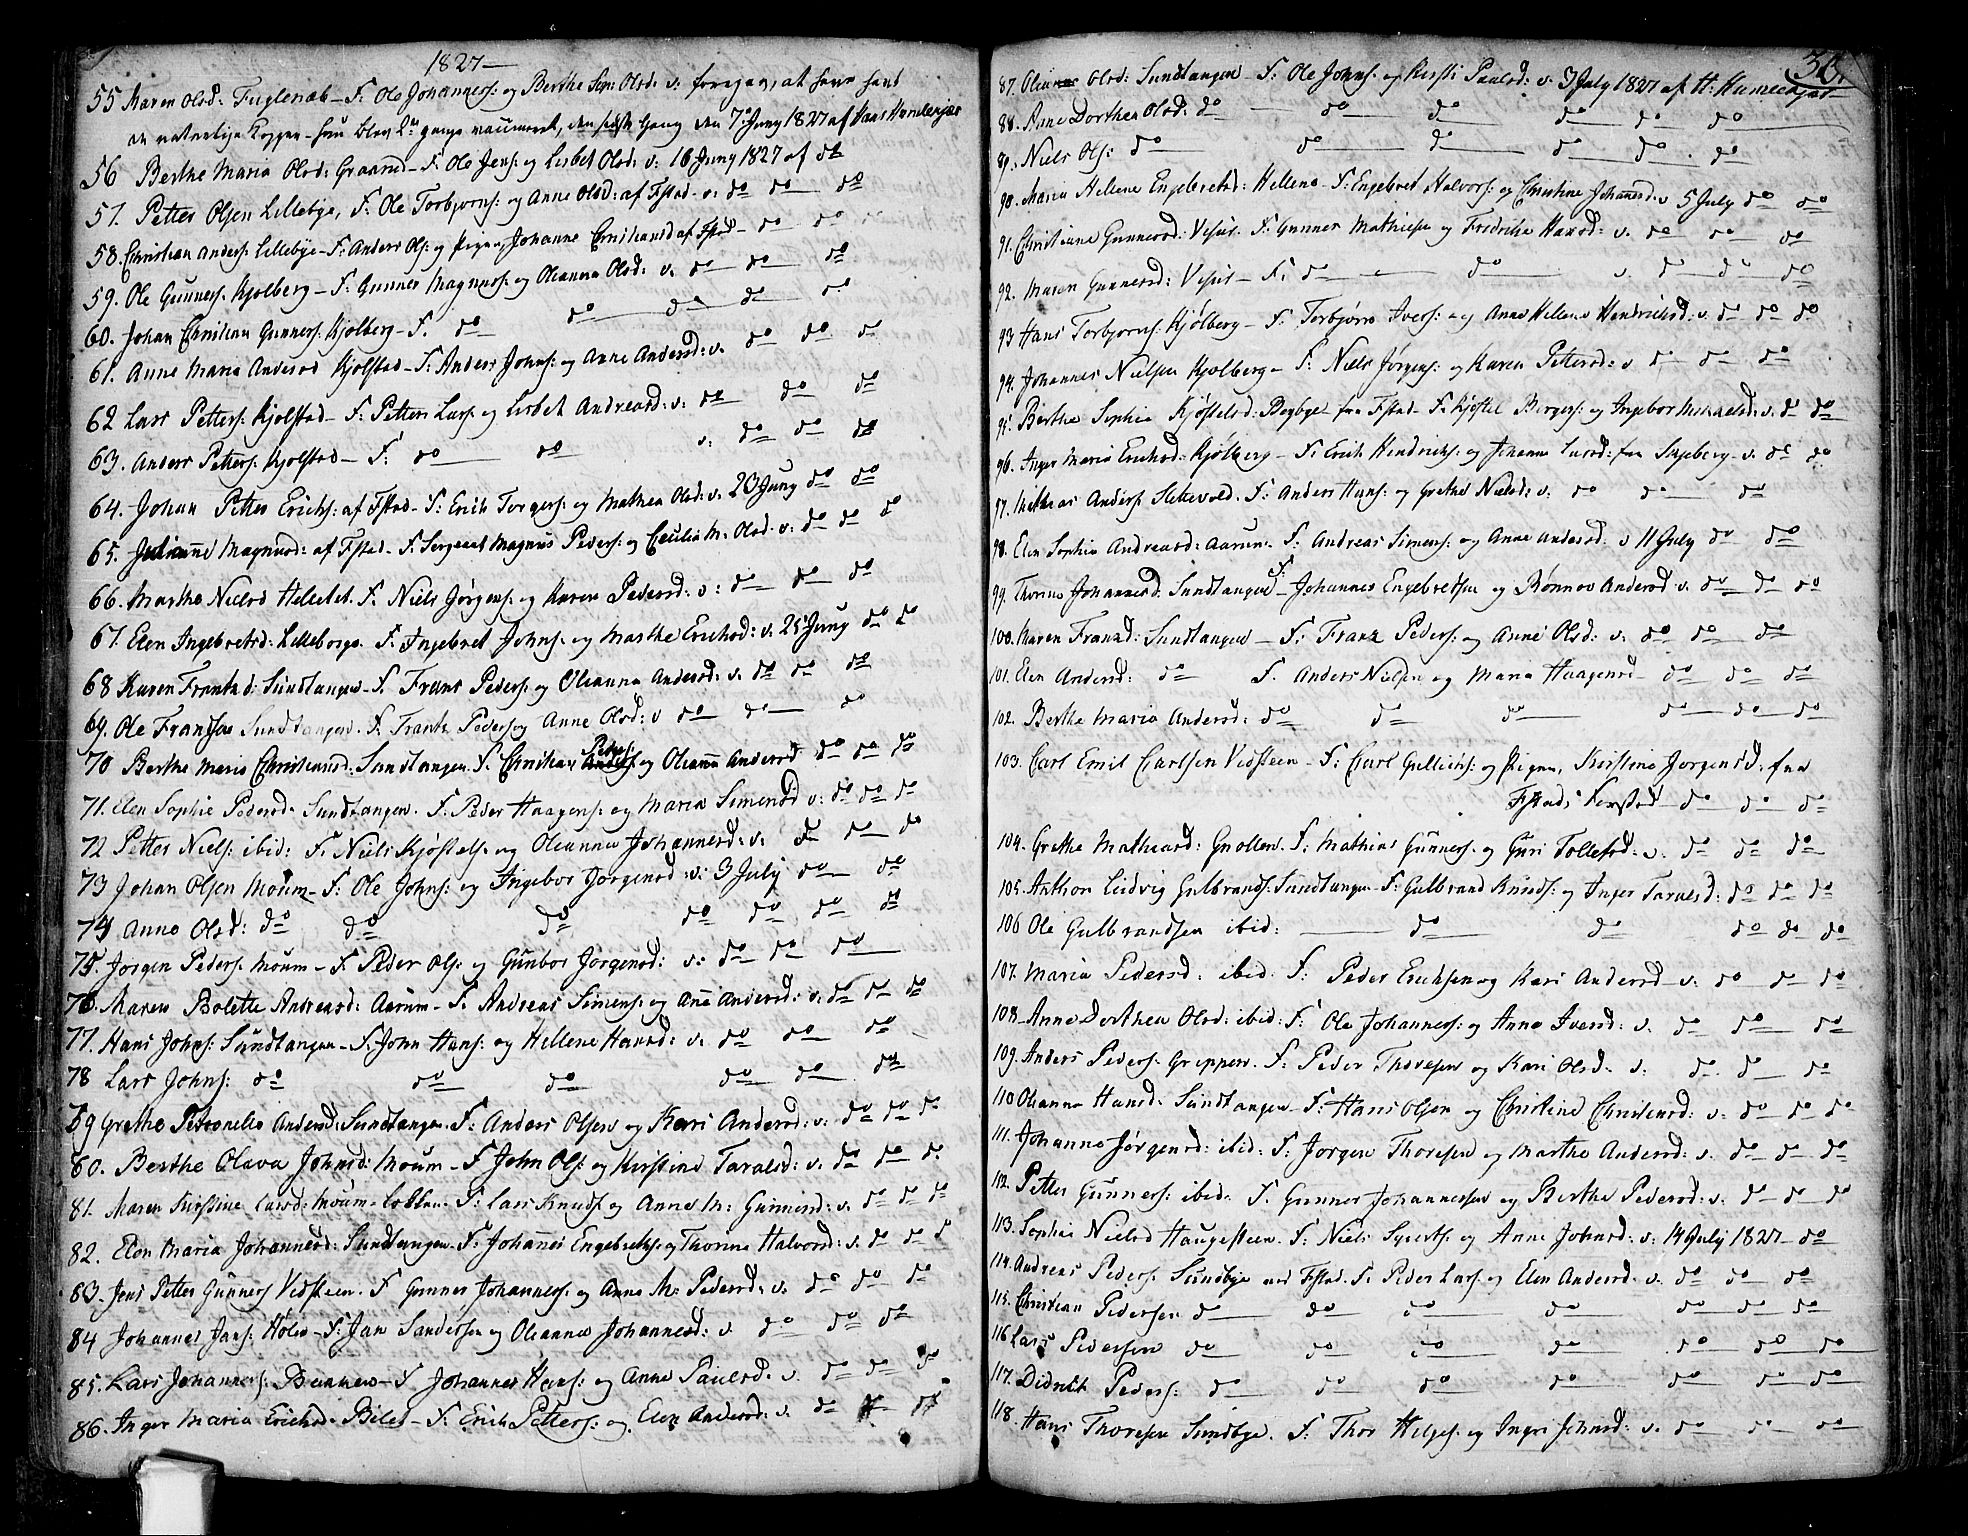 1827 –
55 Maren Olsd: Fuglenæb – F: Ole Johannes: og Berthe Olsd: v: foregav, at have havt
de naturlige Kopper – hun blev 2de gange vaccineret, den sidste Gang den 7de Juny 1827 af Hans
56 Berthe Maria Olsd: Graanæs – F. Ole Jens: og Lisbet Olsd: v: 16 Juny 1827 af do
57. Petter Olsen Lillebye, F: Ole Torbjørns: og Anne Olsd: af Fstad – v: do do do
58. Christian Anders: Lillebye – F: Anders Ols: og Pigen Johanne af Fstad – do do do
59. Ole Gunners: Kjølberg – F: Gunner Magnus: og Oleanna Olsd: v: do do do
60. Johan Christian Gunners: Kjølberg – F. do do do do do
61. Anne Maria Andersd Kjølstad – F: Anders Johns: og Anne Andersd: v. do do do
62 Lars Petters: Kjølstad – F: Petter Lars: og Lisbet Andreasd: v: do do do
63. Anders Petters: Kjølstad – F: do do v: do do do
64. Johan Petter Erichs: af Fstad – F: Erich Torgers: og Mathea Olsd: v. 23 Juny do do
65. Julianne Magnusd: af Fstad – F. Sergeant Magnus Peders: og Cecilia M: Olsd. v: do do do
66. Marthe Nielsd Helletet. F: Niels Jørgens: og Karen Pedersd: v: do do do
67. Elen Ingebretsd: Lilleborge. F: Ingebret Johns: og Marthe Erichsd: v: 25 Juny do do
68 Karen Frantzd: Sundtangen – F. Frans Peders: og Oleanna Andersd: v. do do do
69. Ole Frandsen Sundtangen. F. Frantz Peders: og Anne Olsd: v do do do
70 Berthe Maria Christiansd: Sundtangen F. Christian Peders: og Oleanna Andersd do do do
71. Elen Sophie Pedersd. Sundtangen. F: Peder Haagens: og Maria Simensd v: do do do
72 Petter Niels: ibid: F: Niels Kjøstels: og Oleanna Johannesd: v. do do do
73 Johan Olsen Moum – F. Ole Johns: og Ingebor Jørgensd: v: 3 July do do
74 Anne Olsd: do do do do do do do
75. Jørgen Peders: Moum – F. Peder Ols: og Gunbor Jørgensd: v: do do do
76. Maren Bolette Andreasd: Aarum – F. Andreas Simens: og Ane Andersd: v. do do do
77. Hans Johns: Sundtangen – F. John Hans: og Hellene Hansd: v. do do do
78 Lars Johns: do do do do do do
79 Grethe Petronelle Andersd: Sundtangen. F: Anders Olsen og Kari Andersd: v: do do do
80. Berthe Olava Johnsd: Moum – F John Ols: og Kirstine Taralsd: v. do do do
81. Maren Kirstine Larsd: Moum – Løkken. F: Lars Knuds: og Anne M: Gunnersd: v. do do do
82. Elen Maria Johannesd: Sundtangen – F: Johannes Engebrets: og Thorine Halvorsd: v. do do do
83. Jens Petter Gunners Vidsteen. F Gunner Johannes: og Anne M: Pedersd: v. do do do
84 Johannes Jans: Holm – F: Jan Sandersen og Oleanna Johannesd: v. do do do
85. Lars Johannes: – F Johannes Hans: og Anne Paulsd. v. do do do
86. Inger Maria Erichsd: – F. Erich Petters: og Elen Andersd: v. do do do
87. Oleanne Olsd: Sundtangen – F: Ole Johns: og Kirsti Paulsd: v. 3 July 1827 af H:
88. Anne Dorthea Olsd: do do do do do do
89. Niels Ols: do do do do do do
90. Maria Hellene Engebretsd: Hellene – F: Engebret Halvors: og Christine Johannesd: v 5 July do do
91. Christiane Gunnersd: F: Gunner Mathiesen og Fredrike Hansd: v. do do do
92. Maren Gunnersd: – F: do do v. do do do
93 Hans Torbjørns: Kjølberg – F: Torbjørn Ivers: og Anne Hellene Hendrichsd: v. do do do
94. Johannes Nielsen Kjølberg – F: Niels Jørgens: og Karen Pettersd: v. do do do
95. Berthe Sophie Kjøstelsd: fra Fstad – F. Kjøstel Børges: og Ingebor v. do do
96. Inger Maria Erichsd: Kjølberg – F: Erich Hendrichs: og Johanne Larsd: fra Skjeberg – v. do do
97. Mathias Anders: Slettevold. F: Anders Hans: og Grethe Nielsd: v. do do do
98. Elen Sophie Andreasd: Aarum – F: Andreas Simens: og Anne Andersd: v 11 July do do
99. Thorine Johannesd: Sundtangen F: Johannes Engebretsen og Rønnov Andersd v. do do do
100. Karen Franzd: Sundtangen – F: Franz Peders: og Anne Olsd: v. do do do
101. Elen Andersd: do F. Anders Nielsen og Maria Haagensd – do do do
102. Berthe Maria Andersd: do do do do do do
103. Carl Emil Carlsen Vidsteen – F: Carl Gullichs: og Pigen, Kirstine Jørgensd: fra
Fstads do do do
104. Grethe Mathiasd: Gnollen F: Mathias Gunners: og Guri Tollefsd: v. do do do
105. Anthon Ludvig Gulbrands: Sundtangen – F: Gulbrand Knuds: og Inger Taralsd: do do do
106 Ole Gulbrandsen ibid: do do do do do
107. Maria Pedersd: ibid: F: Peder Erichsen og Kari Andersd – v: do do do
108. Anne Dorthea Olsd: ibid: F: Ole Johannes: og Anne Iversd: v. do do do
109. Anders Peders: Grippen. F: Peder Thoresen og Kari Olsd. v: do do do
110 Oleanna Hansd. Sundtangen – F: Hans Olsen og Christine Christensd: v. do do do
111. Johanne Jørgensd: ibid. F: Jørgen Thoresen og Marthe Andersd: v. do do do
112. Petter Gunners: ibid. F. Gunner Johannesen og Berthe Pedersd: v: do do do
113. Sophie Nielsd Haugesteen. F: Niels og Anne Johnsd: v: 14 July 1827 – do
114. Andreas Peders: Sundbye ved Fstad. F: Peder Lars: og Elen Andersd: v. do do do
115. Christian Pedersen do do do do do do do
116 Lars Pedersen do do do do do do do
117. Didrick Peders: do do do do do do do
118. Hans Thoresen Sundbye. F: Thor Helges: og Ingri Johnsd: v. do do do